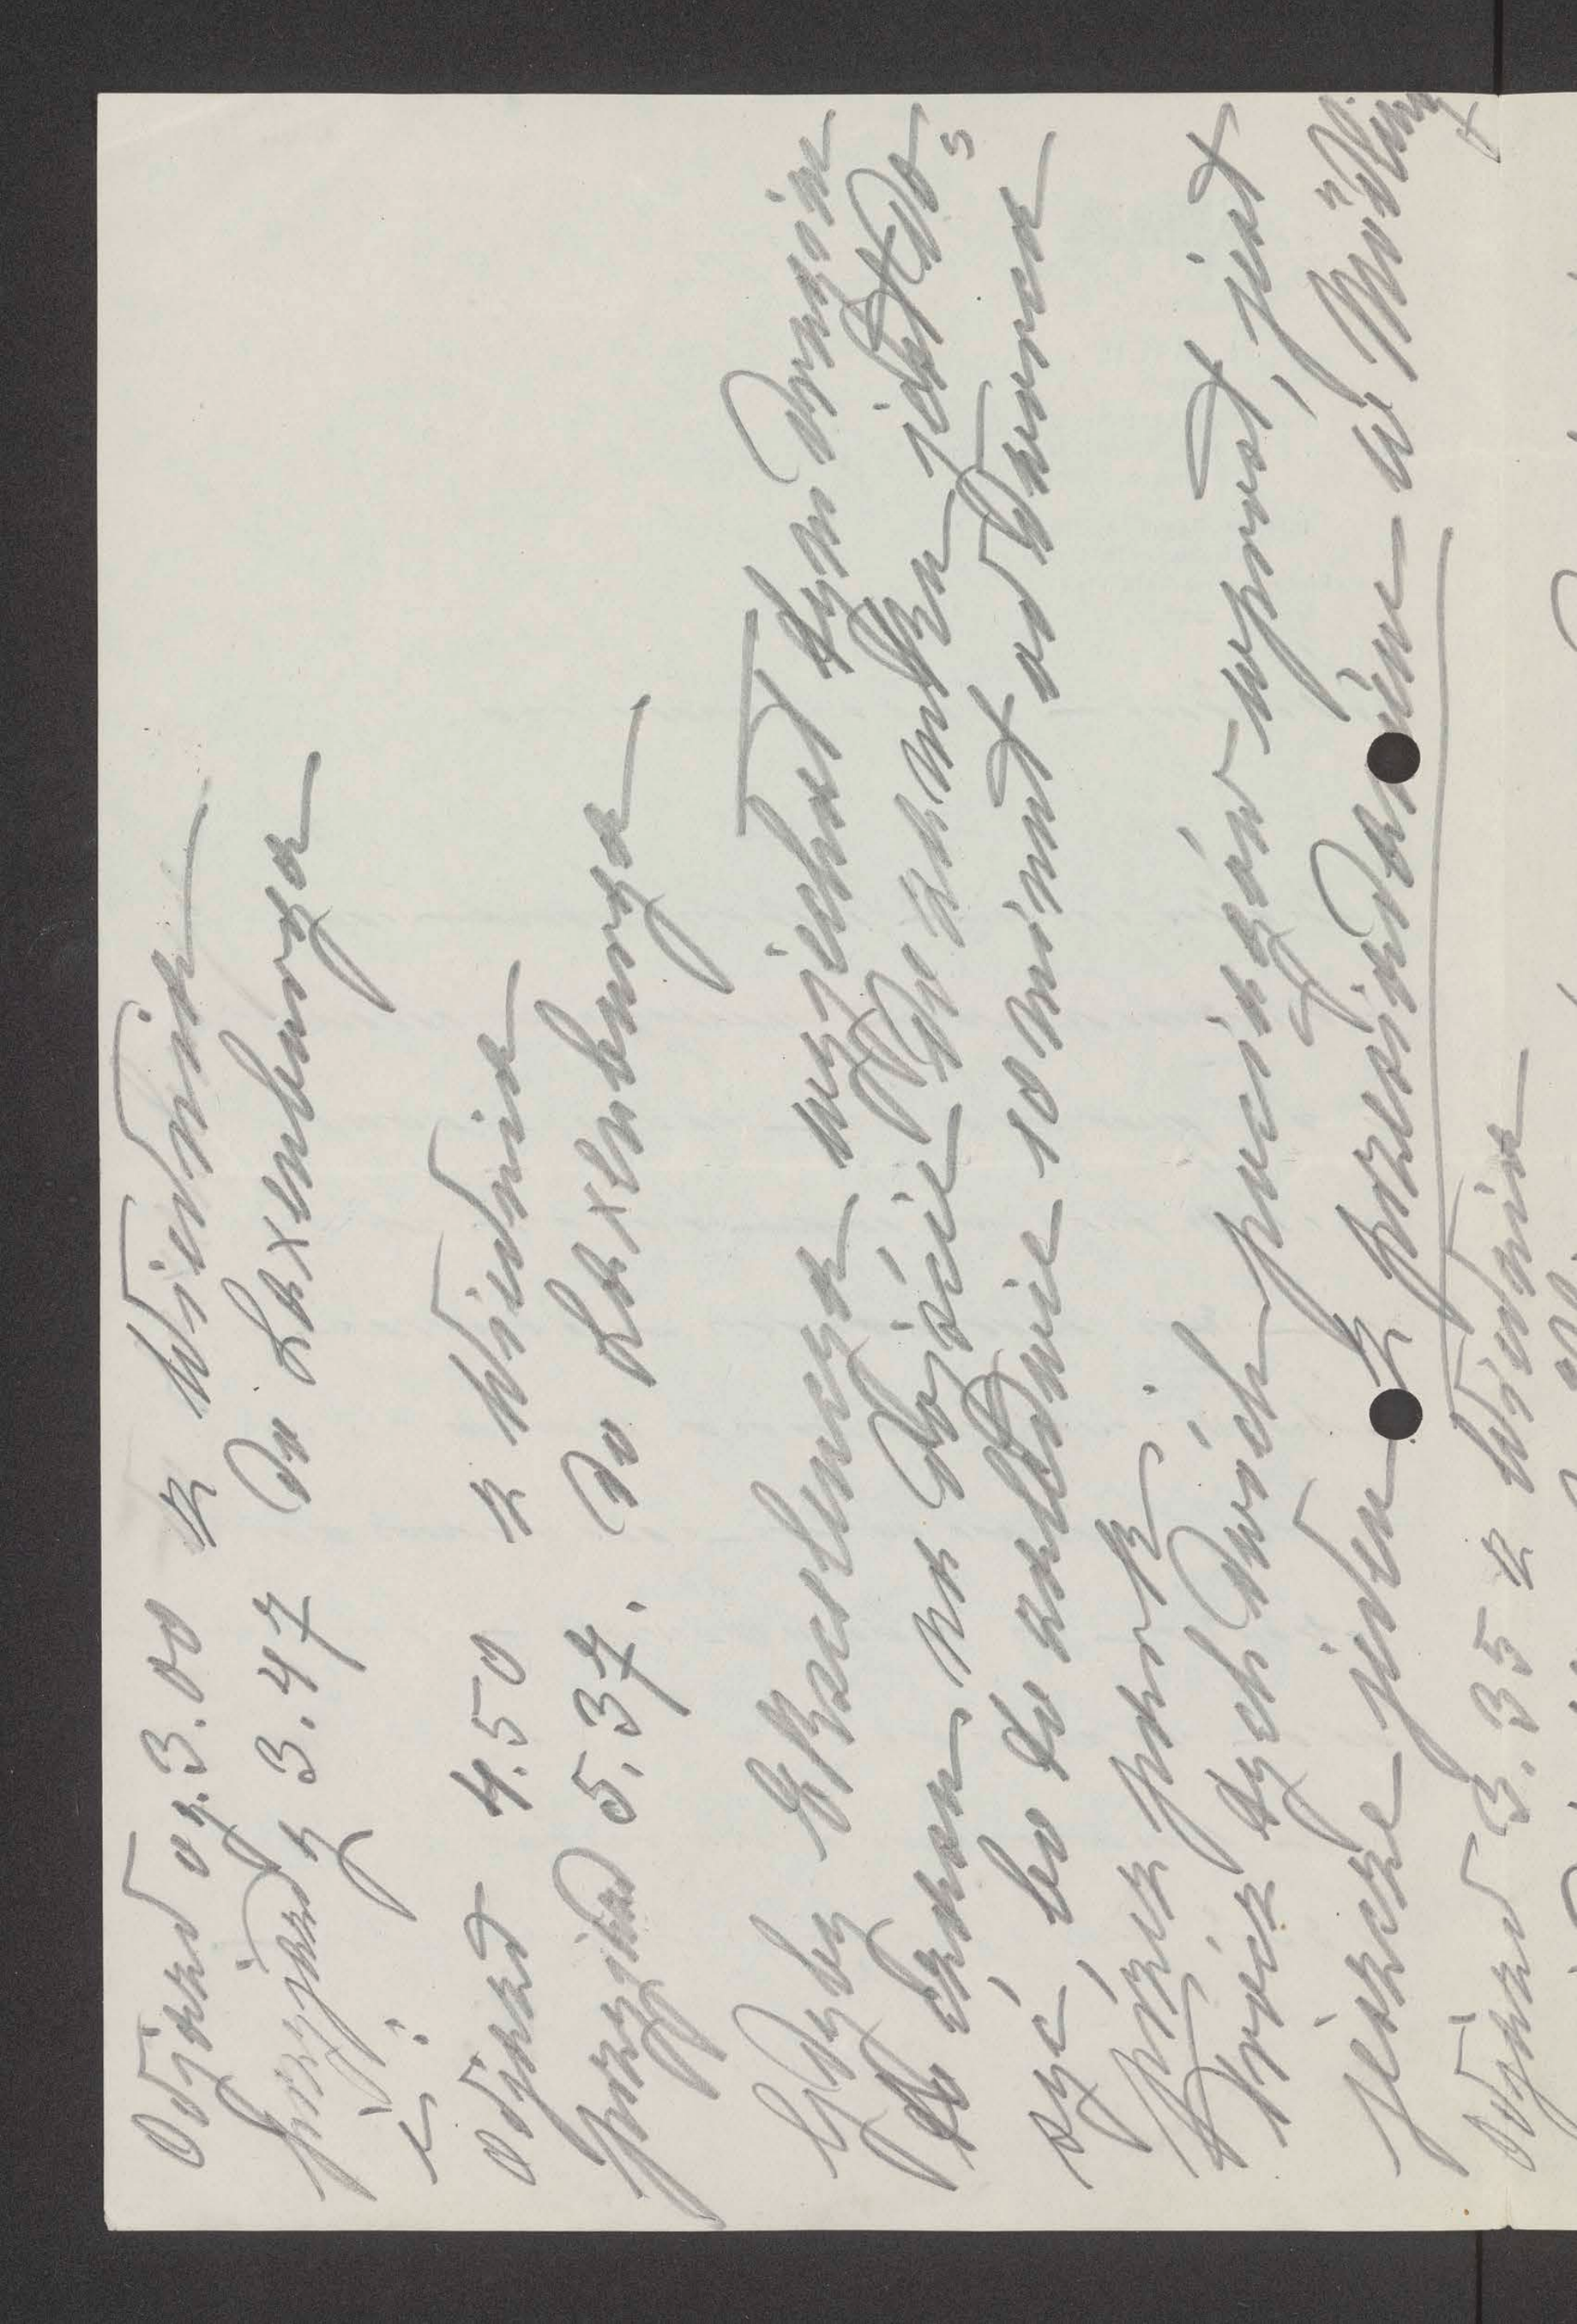 Odjazd og. 3.00 z Wiednia
przyjazd 3.47 do Laxenburga
i:
odjazd 4.50 z Wiednia
przyjazd 5.37. do Laxenburga
Gdyby Ekscelencya wyjechał tym drugim
to czasu na dojście do zamku jest do=
syć, bo to zaledwie 10 minut od dworca
przez park.
Prócz tych dwóch pociągów wprost, jest
jeszcze jeden z przesiadaniem w Mödling
odjazd 3.35 z Wiednia